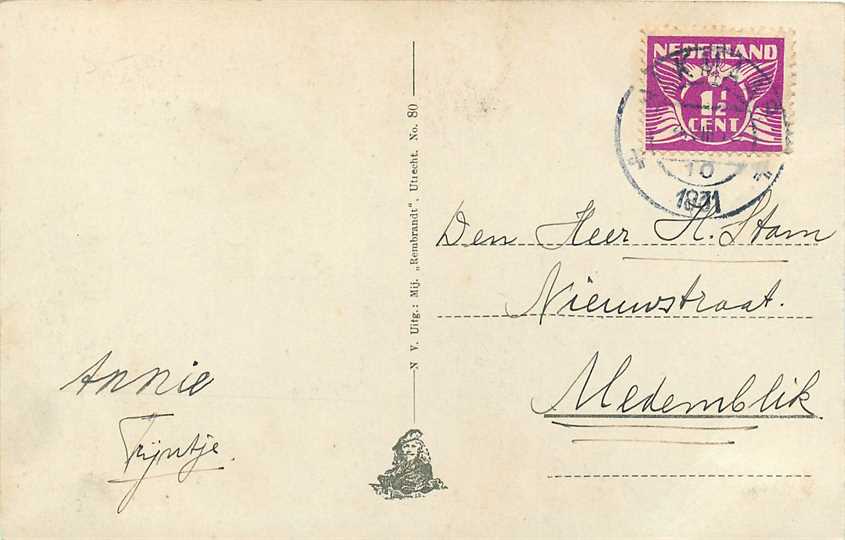 NEDERLAND
1½
CENT
10
1931
Den Heer K. Stam
Nieuwstraat.
Medemblik
N V. Uitg.: Mij. „Rembrandt", Utrecht. No. 80
Annie
Trijntje.